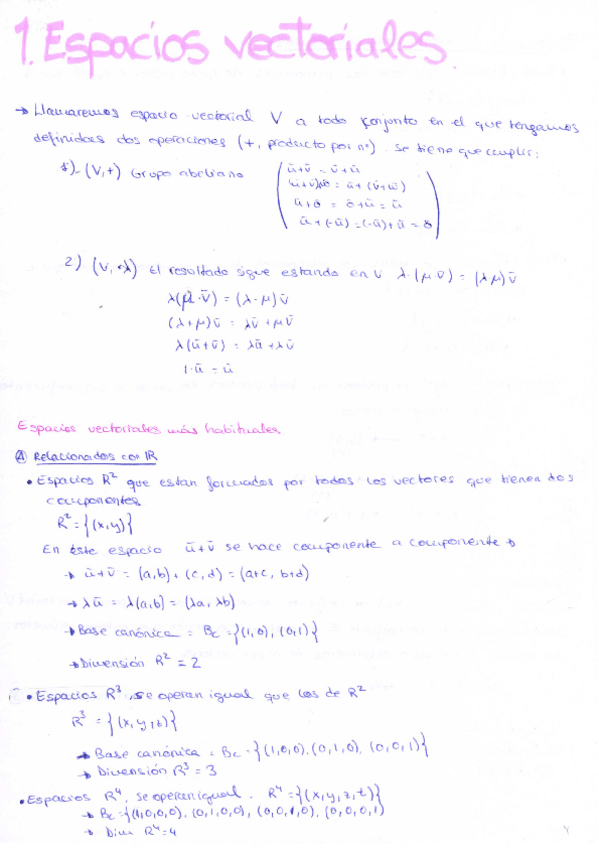 1. Espacios vectoriales
→ Llamaremos espacio vectorial V a todo conjunto en el que tengamos
definidas dos operaciones (+, producto por nº). Se tiene que cumplir:
1)- (V,+) Grupo abeliano
ū+v̄ = v̄+ū
(ū+v̄)+w̄ = ū+(v̄+w̄)
ū+ō = ō+ū = ū
ū+(-ū)=(-ū)+ū = ō
2) (V, ·λ) El resultado sigue estando en V λ·(μ·v̄) = (λ·μ)v̄
λ(μ·v̄) = (λ·μ)v̄
(λ+μ)v̄ = λv̄ + μv̄
λ(ū+v̄) = λū+λv̄
1·ū = ū
Espacios vectoriales más habituales
A Relacionados con IR
• Espacios R² que están formados por todos los vectores que tienen dos
componentes
R²={(x,y)}
En éste espacio ū+v̄ se hace componente a componente →
→ ū+v̄ = (a,b)+(c,d)=(a+c, b+d)
→ λū = λ(a,b) = (λa, λb)
→ Base canónica = Bc={(1,0),(0,1)}
→ Dimensión R² = 2
• Espacios R³, se operan igual que los de R²
R³ = {(x,y,z)}
→ Base canónica = Bc={(1,0,0),(0,1,0),(0,0,1)}
→ Dimensión R³ = 3
• Espacios R⁴, se operan igual. R⁴={(x,y,z,t)}
→ Bc={(1,0,0,0),(0,1,0,0),(0,0,1,0),(0,0,0,1)
→ Dim R⁴=4